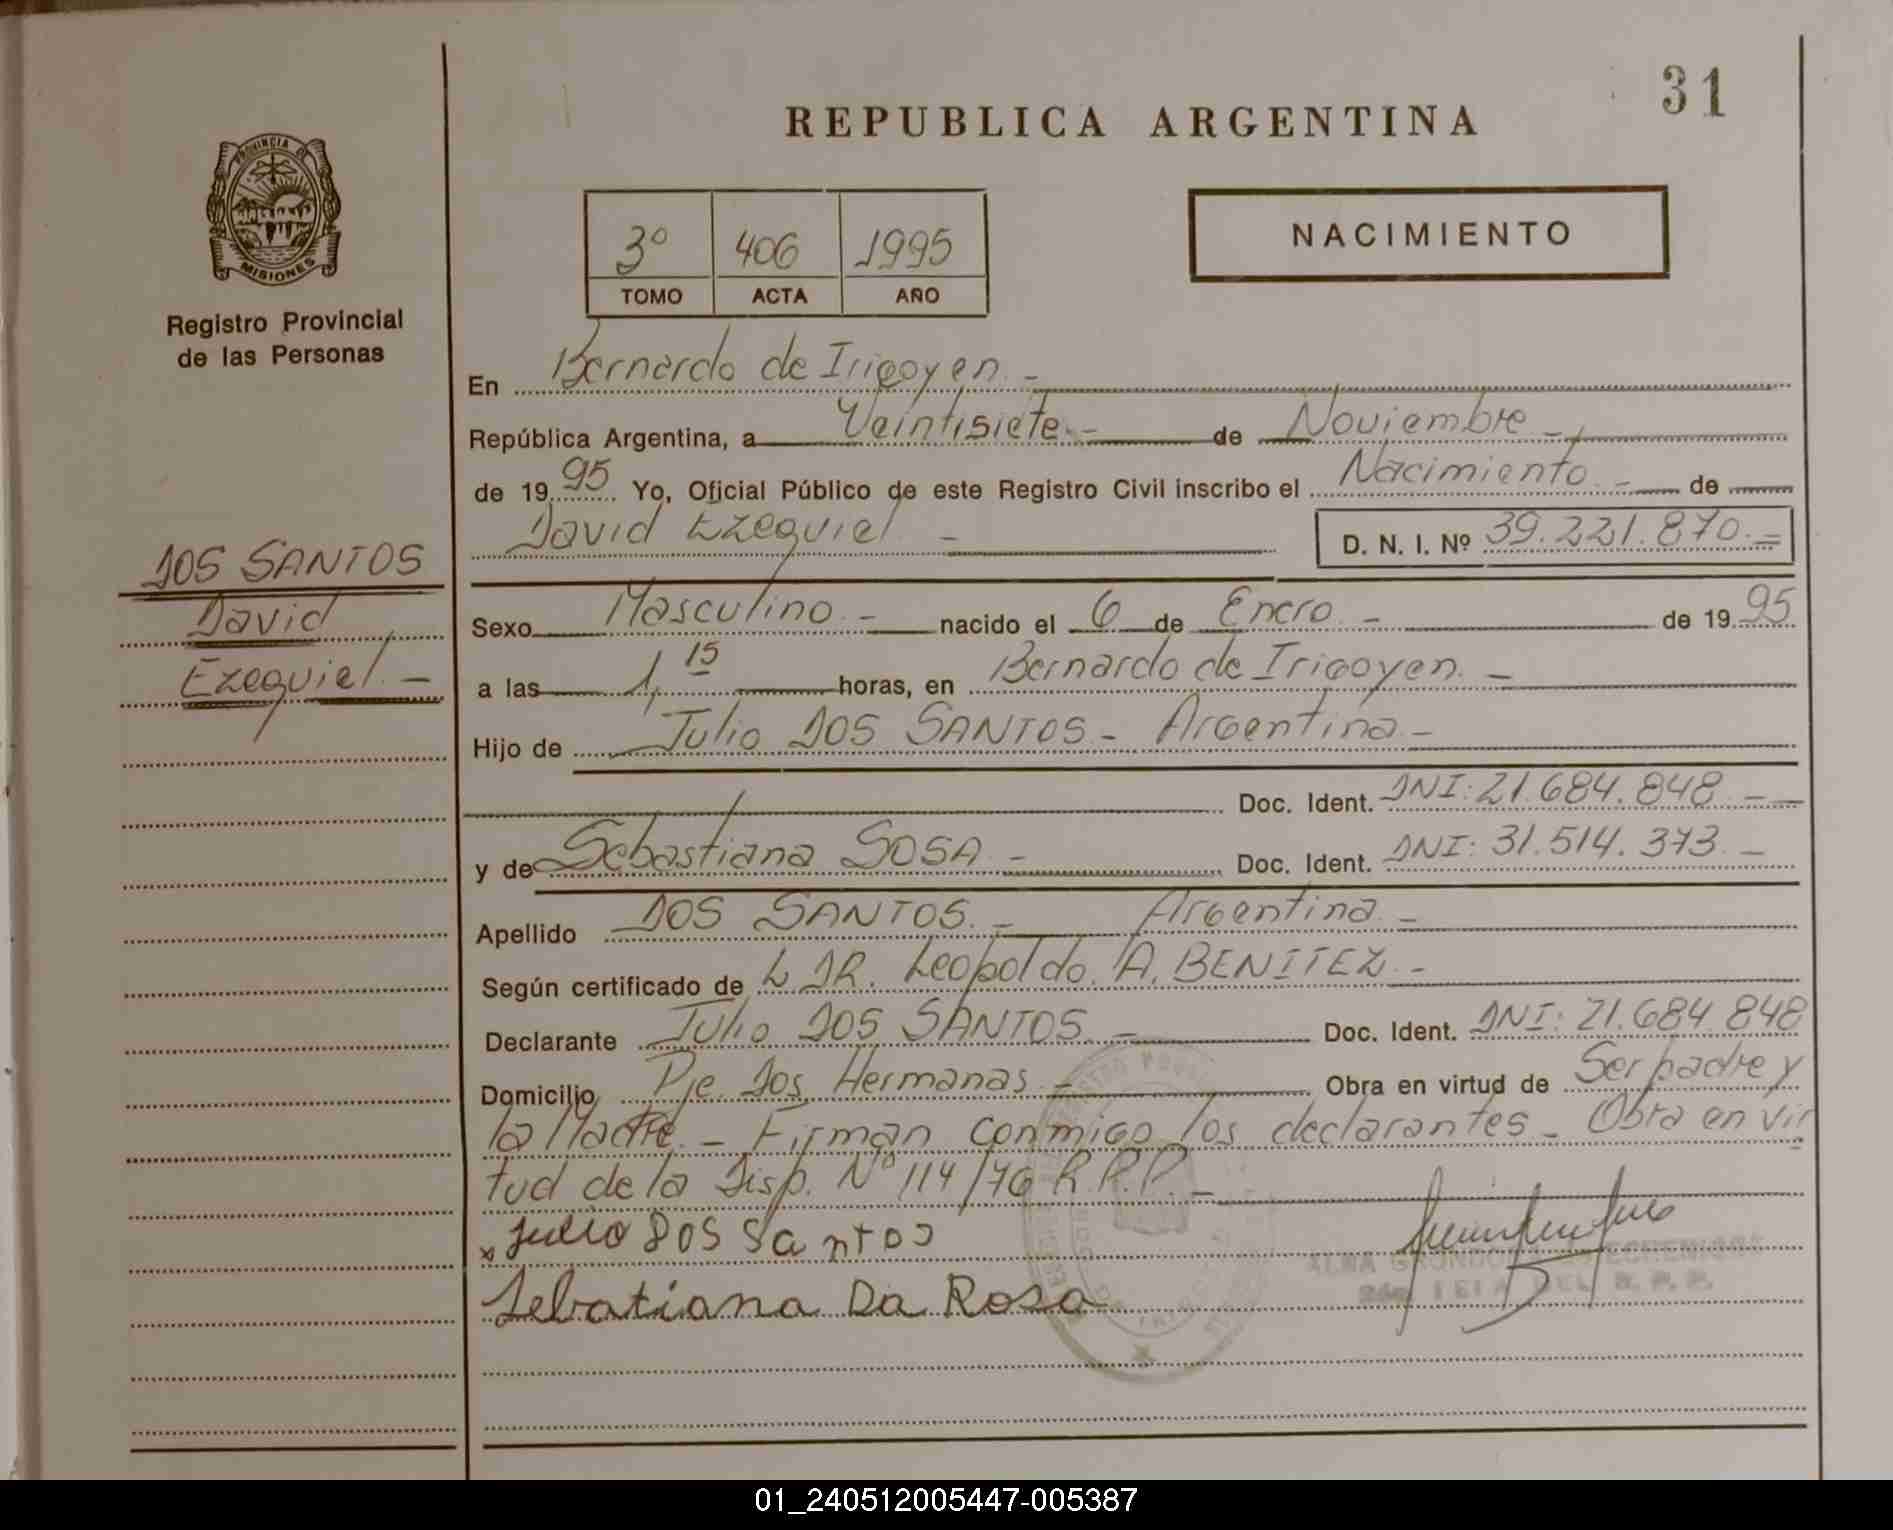 31
REPUBLICA ARGENTINA
PROVINCIA DE
MISIONES
Registro Provincial
de las Personas
3º 406 1995
TOMO ACTA AÑO
NACIMIENTO
En Bernardo de Irigoyen -
República Argentina, a Veintisiete - de Noviembre -
de 1995 Yo, Oficial Público de este Registro Civil inscribo el Nacimiento - de
David Ezequiel - D. N. I. Nº 39.221.870.-
DOS SANTOS
David
Ezequiel. -
Sexo Masculino - nacido el 6 de Enero - de 1995
a las 1,15 horas, en Bernardo de Irigoyen. -
Hijo de Julio DOS SANTOS - Argentina -
Doc. Ident. DNI: 21.684.848 -
y de Sebastiana SOSA - Doc. Ident. DNI: 31.514.373. -
Apellido DOS SANTOS. - Argentina -
Según certificado de L DR. Leopoldo. A. BENITEZ -
Declarante Julio DOS SANTOS - Doc. Ident. DNI: 21.684.848
Domicilio Pje. Dos Hermanas - Obra en virtud de Ser padre y
la Madre. - Firman conmigo los declarantes - Obra en vir
tud de la Disp. Nº 114/76 R.P.P. -
x Julio Dos Santos
Sebatiana Da Rosa
ALBA
01_240512005447-005387